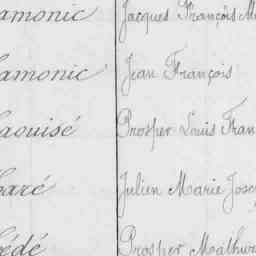 amonic Jacques François M
amonic Jean François
aouisé Prosper Louis Fran
aré Julien Marie Jose
édé Prosper Mathur